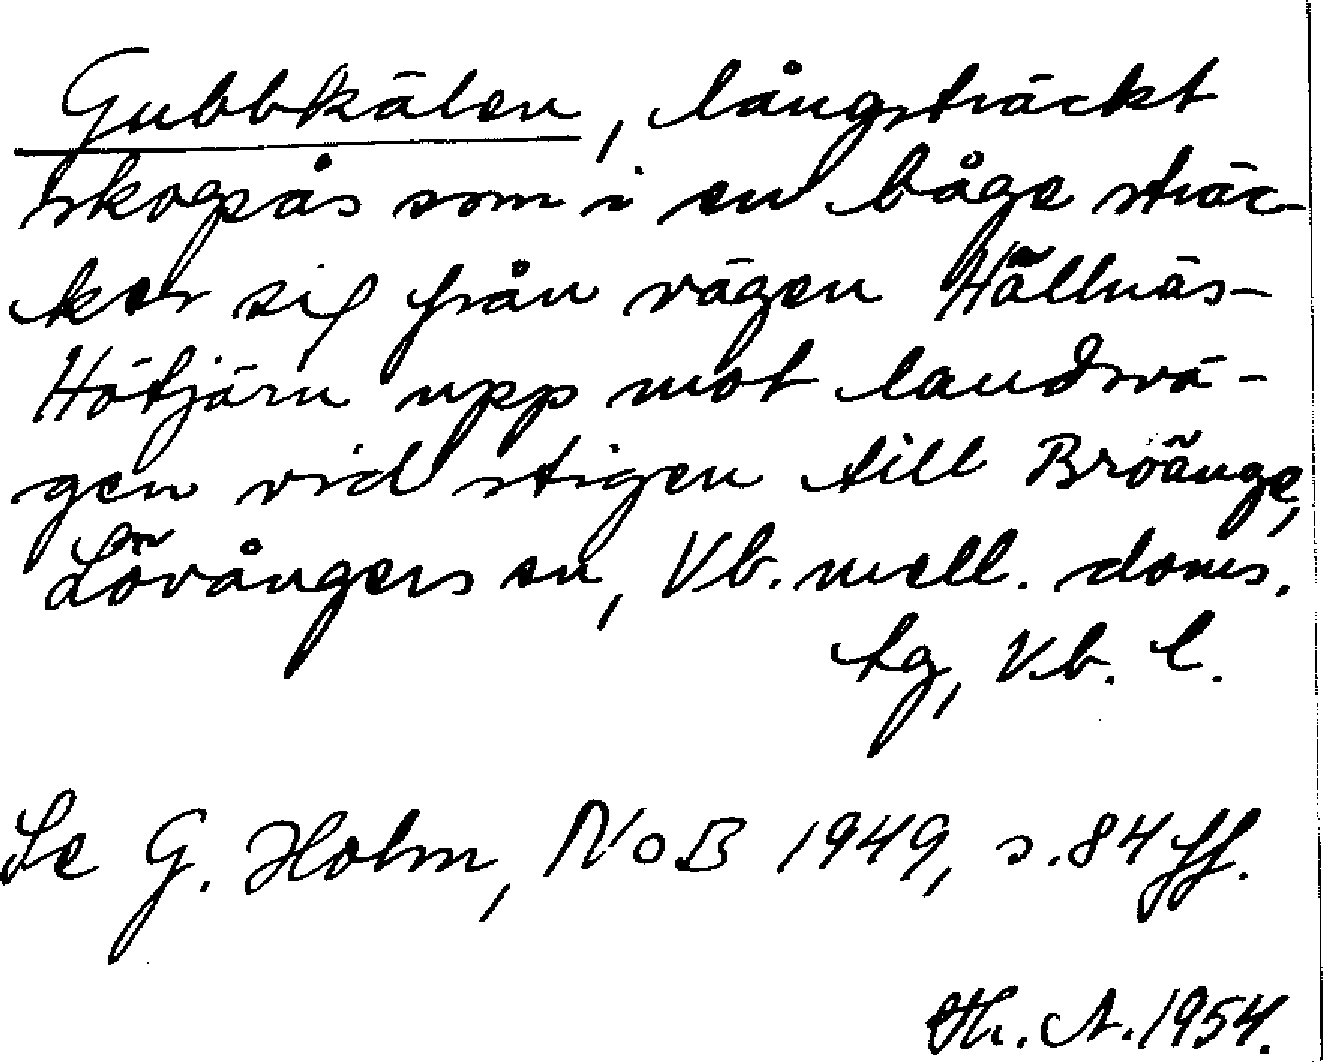 Gubbkälen, långsträckt
skogsås som i en båge sträc-
ker sig från vägen Hällnäs-
Hötjärn upp mot landsvä-
gen vid stigen till Bröänge,
Lövångers sn, Vb. mell. doms.
tg, Vb. l.
Se G. Holm, NoB 1949, s. 84 ff.
Th. A. 1954.